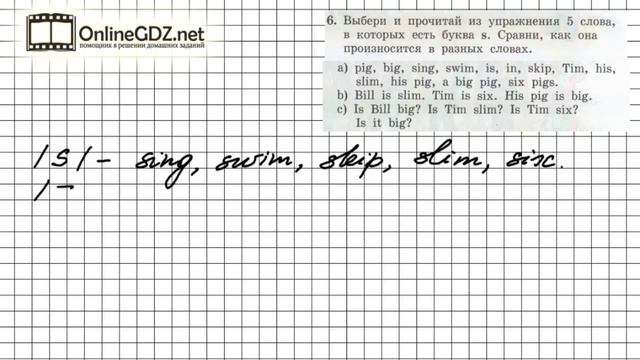 OnlineGDZ.net
помощник в решении домашних заданий
6. Выбери и прочитай из упражнения 5 слова,
в которых есть буква s. Сравни, как она
произносится в разных словах.
a) pig, big, sing, swim, is, in, skip, Tim, his,
slim, his pig, a big pig, six pigs.
b) Bill is slim. Tim is six. His pig is big.
c) Is Bill big? Is Tim slim? Is Tim six?
Is it big?
/s/ – sing, swim, skip, slim, six.
/